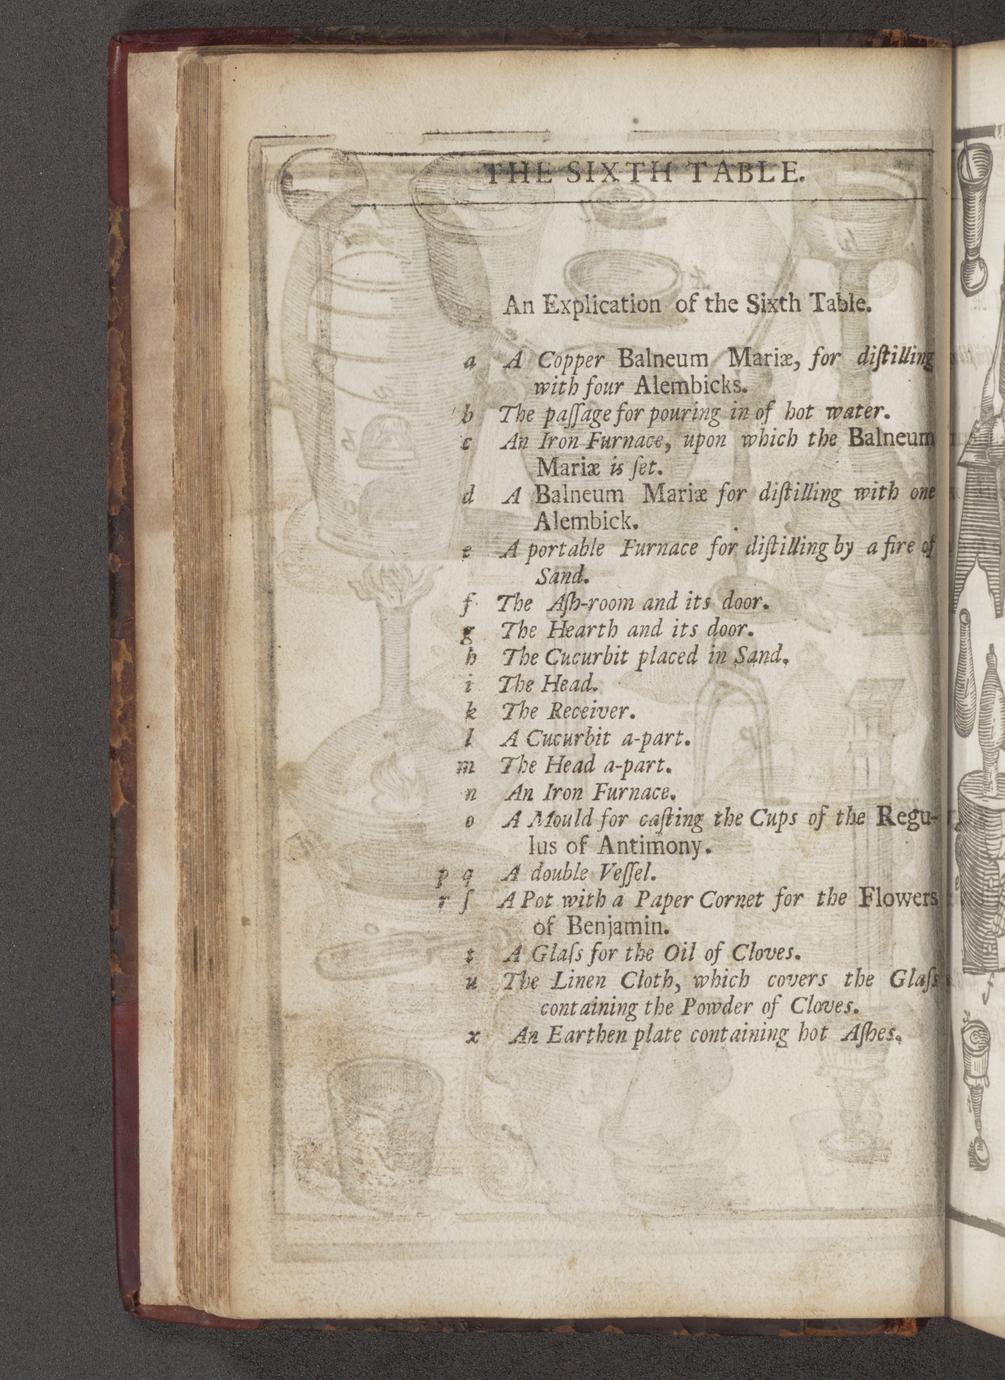 THE SIXTH TABLE.
An Explication of the Sixth Table.
a A Copper Balneum Mariæ, for diſtilling
with four Alembicks.
b The paſſage for pouring in of hot water.
c An Iron Furnace, upon which the Balneum
Mariæ is ſet.
d A Balneum Mariæ for diſtilling with one
Alembick.
e A portable Furnace for diſtilling by a fire of
Sand.
f The Aſh-room and its door.
g The Hearth and its door.
h The Cucurbit placed in Sand.
i The Head.
k The Receiver.
l A Cucurbit a-part.
m The Head a-part.
n An Iron Furnace.
o A Mould for caſting the Cups of the Regu-
lus of Antimony.
p q A double Veſſel.
r ſ A Pot with a Paper Cornet for the Flowers
of Benjamin.
t A Glaſs for the Oil of Cloves.
u The Linen Cloth, which covers the Glaſs
containing the Powder of Cloves.
x An Earthen plate containing hot Aſhes.